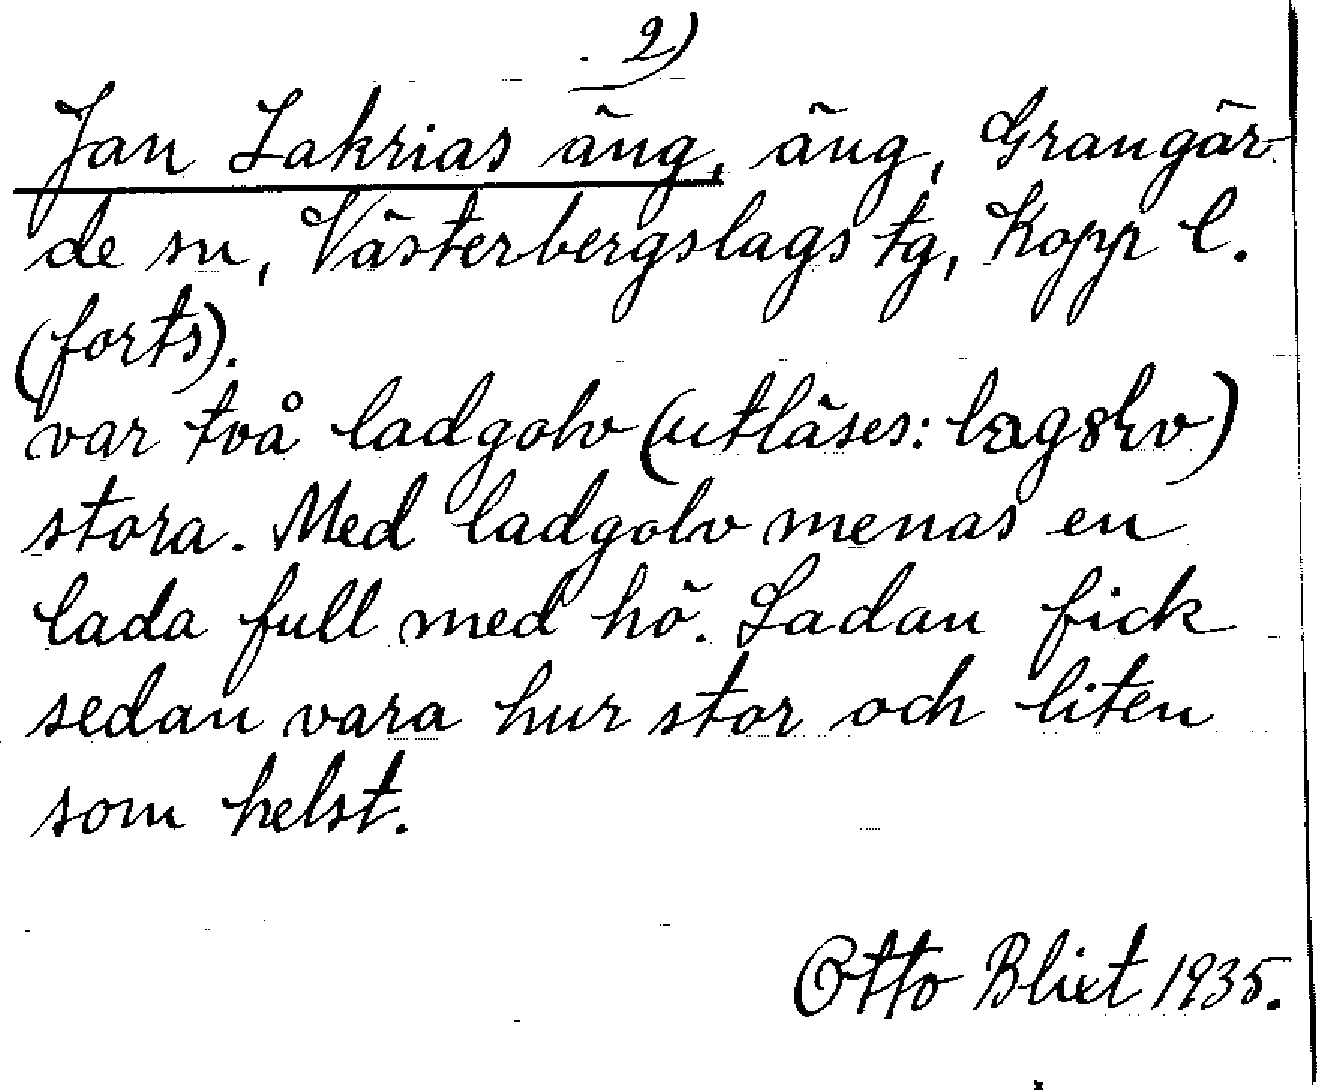 2)
Jan Zakrias äng, äng, Grangär-
de sn, Västerbergslags tg, Kopp l.
(forts).
var två ladgolv (utläses:
stora. Med ladgolv menas en
lada full med hö. Ladan fick
sedan vara hur stor och liten
som helst.
Otto Blixt 1935.